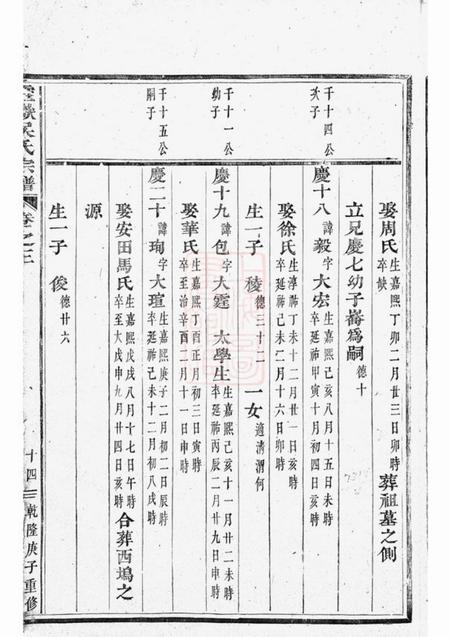 娶周氏生嘉熙丁卯二月廿三日卯時卒缺葬祖墓之側
立兄慶七幼子嵛為嗣德十
千十四公次子
慶十八諱毅字大宏生嘉熙己亥八月十五日未時卒延祐甲寅十月初四日亥時
娶徐氏生淳祐丁未十二月廿一日亥時卒延祐己未二月十六日卯時
生一子稜德三十二一女適清渭何
千十一公幼子
慶十九諱包字大霆太學生生嘉熙己亥十一月廿二未時卒延祐丙辰二月廿九日申時
娶華氏生嘉熙丁酉正月初三日寅時卒至治辛酉二月十一日申時
千十五公嗣子
慶二十諱珣字大瑄生嘉熙庚子二月初二日辰時卒延祐己未十二月初八戌時
娶安田馬氏生嘉熙戊戌八月十七日午時卒至大戊申九月廿四日亥時合葬西塢之
源
生一子俊德廿六
吳氏宗譜卷之三
十四
乾隆庚子重修